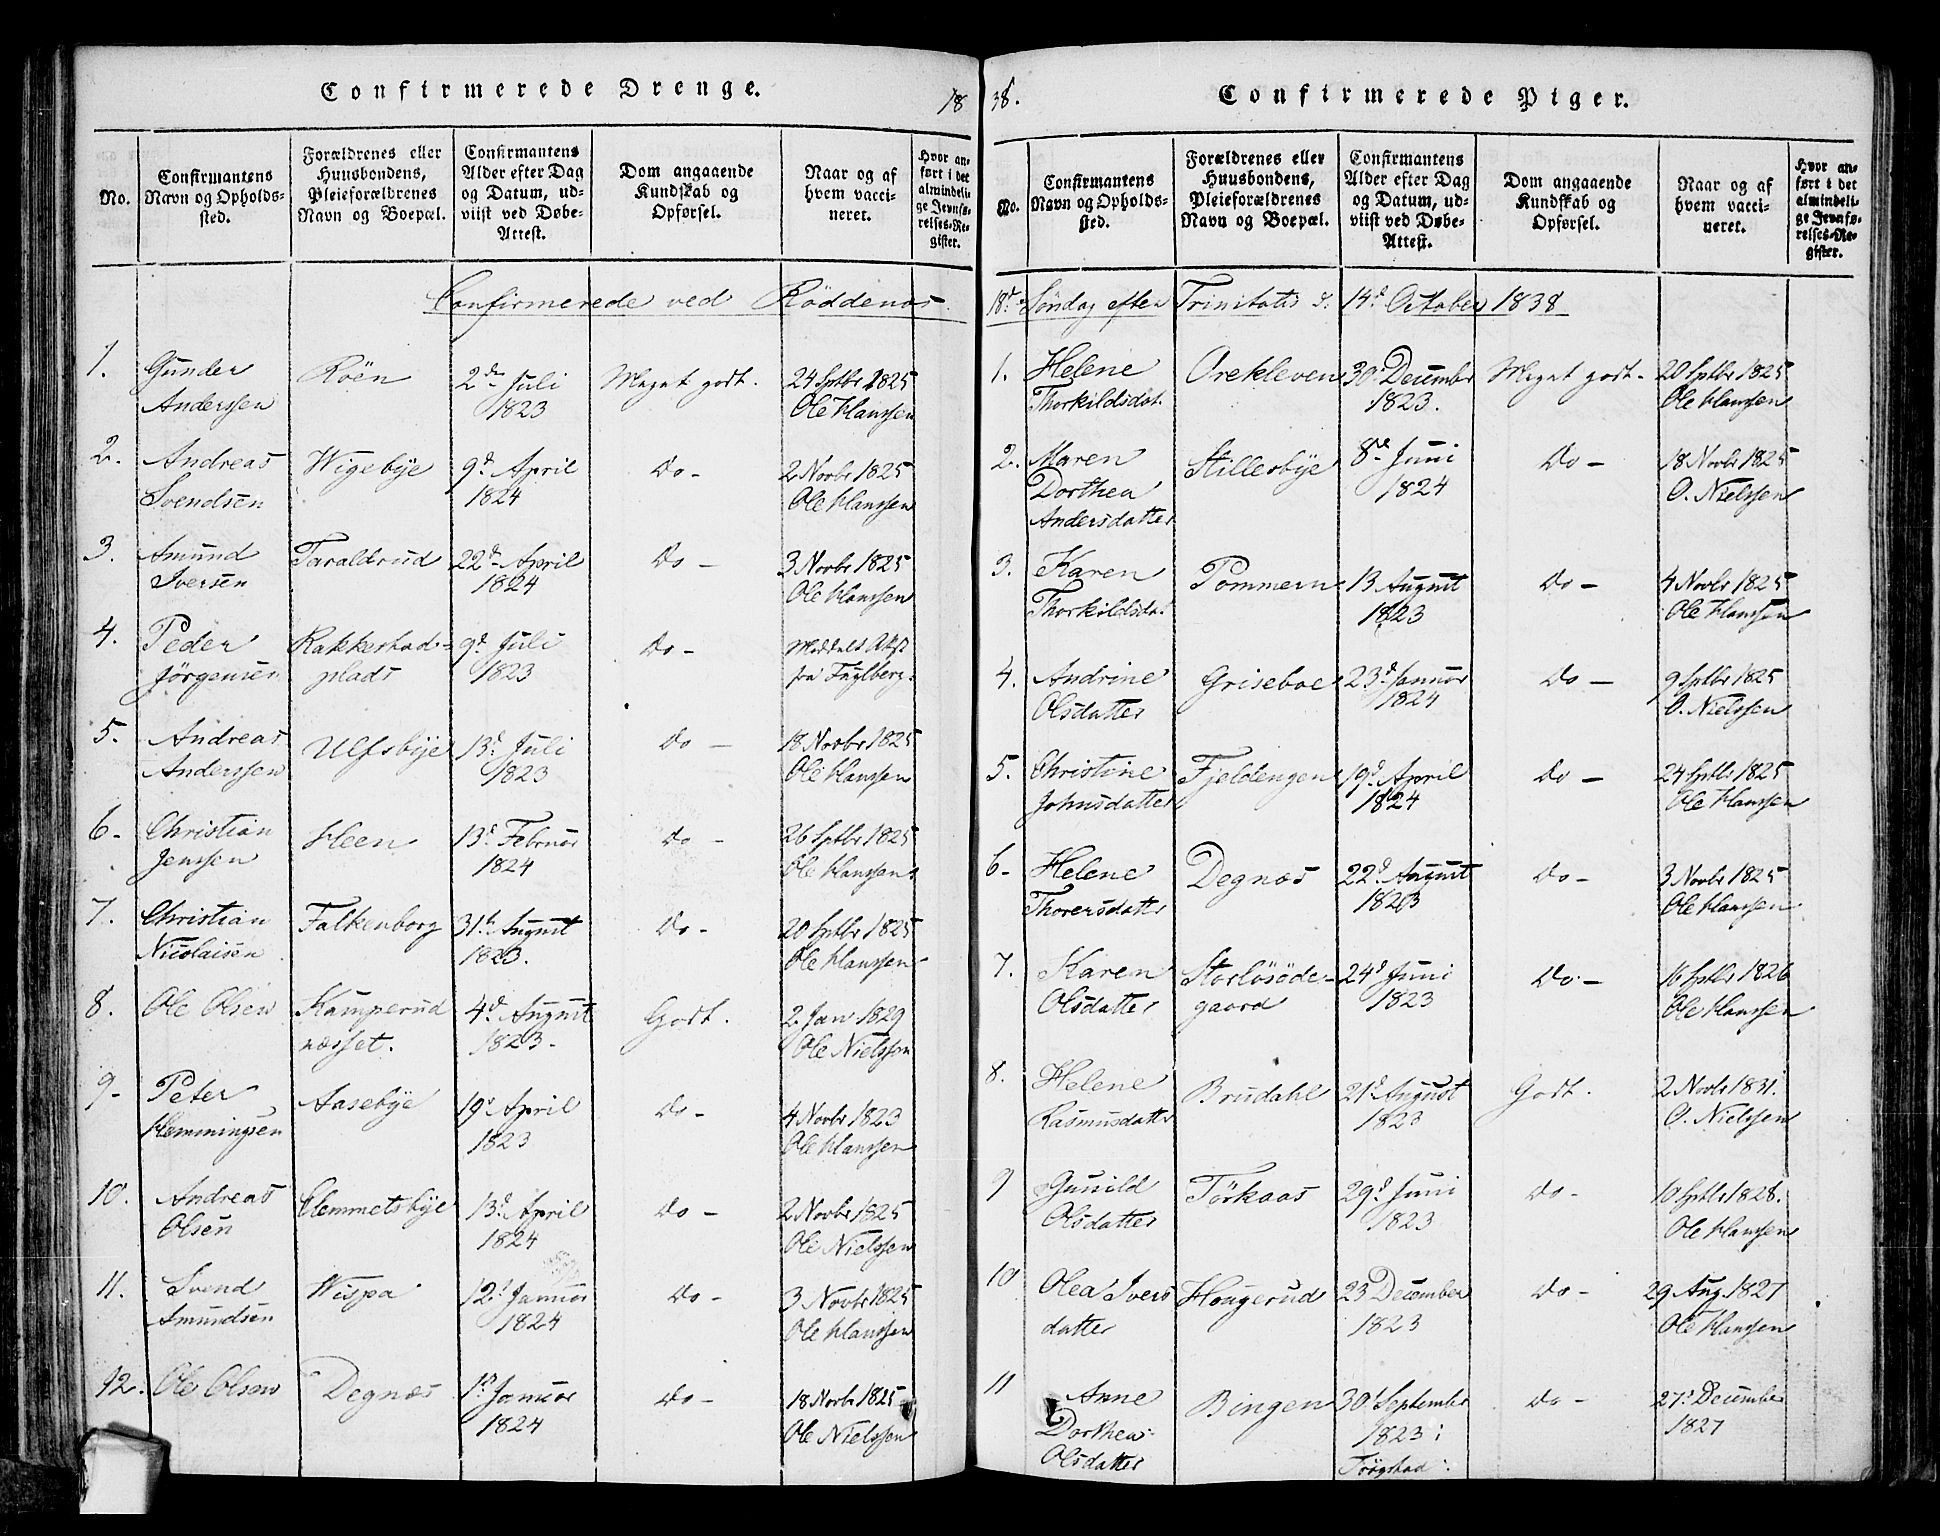 Confirmerede Drenge.
18
No.
Confirmantens Navn og Opholds-sted.
Forældrenes eller Huusbondens, Pleieforældrenes Navn og Boepæl.
Confirmantens Alder efter Dag og Datum, ud-viist ved Døbe-Attest.
Dom angaaende Kundskab og Opførsel.
Naar og af hvem vacci-neret.
Hvor an-ført i det almindeli-ge Jevnfø-relses-Re-gister.
Confirmerede ved Röddenæs
1. Gunder Anderssen Roën 2den Juli 1823 Meget godt. 24 Sptbr 1825 Ole Hanssen
2. Andreas Svendsen Wigebÿe 9d April 1824 Do - 2 Novbr 1825 Ole Hanssen
3. Amund Iversen Taraldrud 22d April 1824 Do - 3 Novbr 1825 Ole Hanssen
4. Peder Jörgensen Rakkestad=plads 9d Juli 1823 Do - Meddelt Attst fra Fuglberg.
5. Andreas Anderssen Ulfsbÿe 13d Juli 1823 Do - 18 Novbr 1825 Ole Hanssen
6. Christian Jenssen Heen 13d Februar 1824 Do - 26 Sptbr 1825 Ole Hanssen
7. Christian Nicolaisen Falkenborg 31d August 1823. Do - 20 Sptbr 1825 Ole Hanssen
8. Ole Olsen Kamperud næsset. 4d August 1823. Godt. 2. Jan 1829 Ole Nielssen
9. Peter Hemmingsen Aasebÿe 19d April 1823 Do - 4 Novbr 1823 Ole Hanssen
10. Andreas Olsen Clemmetsbÿe 13d April 1824 Do - 2 Novbr 1825 Ole Nielssen
11. Svend Amundsen Wispa 12d Januar 1824 Do - 3 Novbr 1825 Ole Hanssen
12. Ole Olsen Degnæs 1n Januar 1824 Do - 18 Novbr 1825 Ole Nielssen
38.
Confirmerede Piger.
No.
Confirmantens Navn og Opholds-sted.
Forældrenes eller Huusbondens, Pleieforældrenes Navn og Boepæl.
Confirmantens Alder efter Dag og Datum, ud-viist ved Døbe-Attest.
Dom angaaende Kundskab og Opførsel.
Naar og af hvem vacci-neret.
Hvor an-ført i det almindeli-ge Jevnfø-relses-Re-gister.
18de Søndag efter Trinitatis d: 14d October 1838
1. Helene Thorkildsdat. Orekleven 30d December 1823. Meget godt - 20 Sptbr 1825 Ole Hanssen
2. Maren Dorthea Andersdatter Stillesbÿe 8de Juni 1824 Do - 18 Novbr 1825 O. Nielssen
3. Karen Thorkildsda. Pommern 13 August 1823 Do - 4 Novbr 1825 Ole Hanssen
4. Andrine Olsdatter Griseboe 23d Januar 1824 Do - 9 Sptbr 1825 O. Nielssen
5. Christine Johnsdatter Fjeldengen 19d April 1824 Do - 24 Sptbr 1825 Ole Hanssen
6. Helene Thorersdatter Degnæs 22d August 1823 Do - 3 Novbr 1825 Ole Hanssen
7. Karen Olsdatter Storløsöde-gaard 24d Juni 1823 Do - 10 Sptbr 1826 Ole Hanssen
8. Helene Rasmusdatter Brudahl 21d August 1823 Godt. 2 Novbr 1831. O. Nielssen
9 Gunild Olsdatter Törkaas 29d Juni 1823 Do - 10 Sptbr 1828. Ole Hanssen
10 Olea Ivers datter Hougerud 23 December 1823 Do - 29 Aug 1827 Ole Hanssen
11 Anne Dorthea Olsdatter Bingen 30d September 1823; Trögstad. Do - 27d December 1827